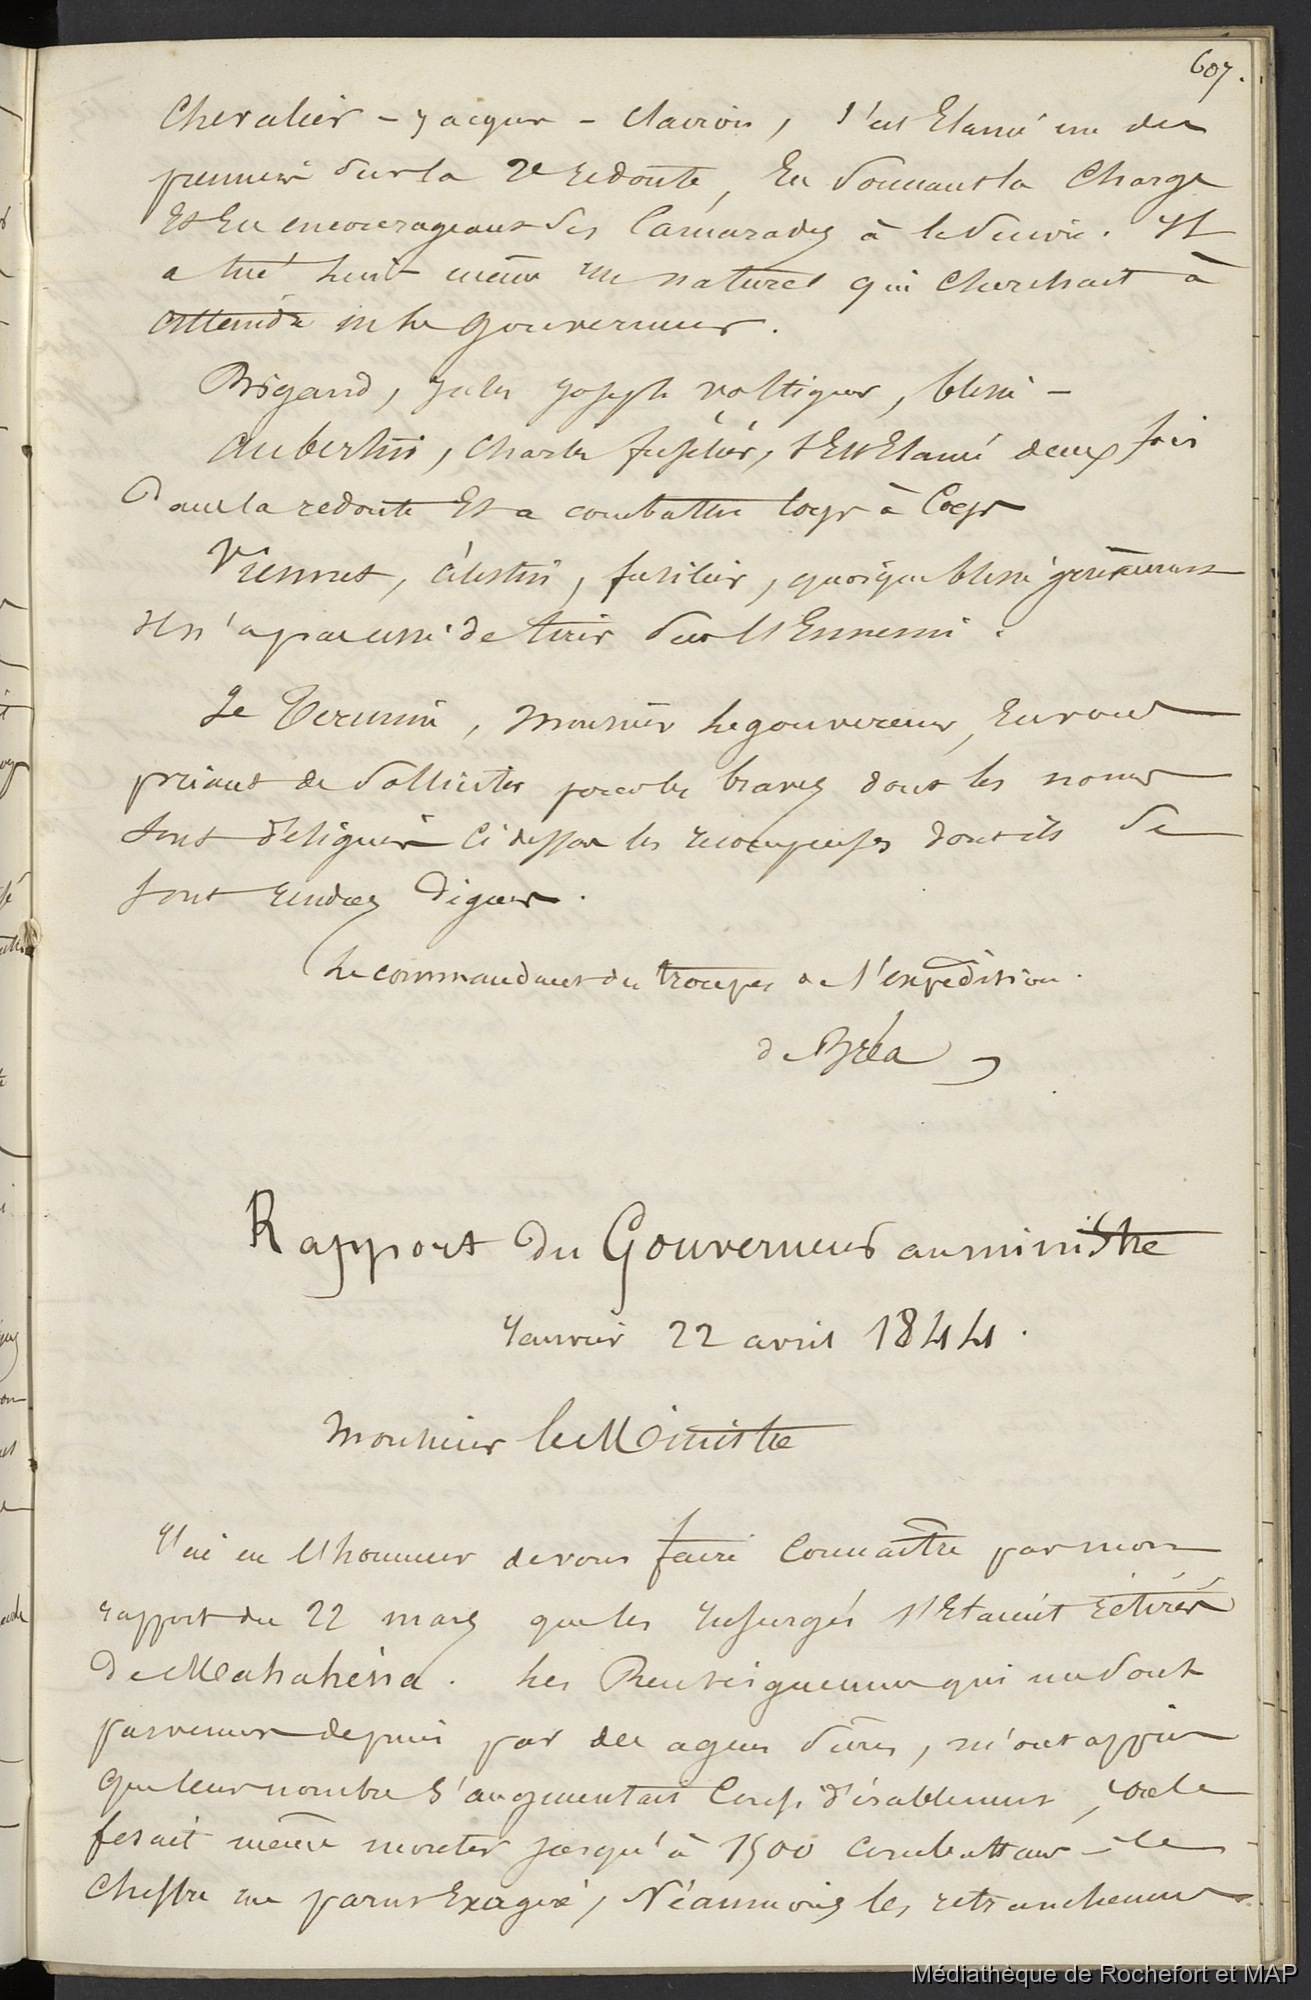 607.
Chevalier – Jacques – clairon, s'est Elancé un des
premiers sur la 2e redoute, En sonnant la Charge
Et En encourageant ses Camarades à le suivre. Il
a tué lui même un naturel qui cherchait à
atteindre Mr le gouverneur.
Brigand, Jules Joseph voltigeur, blessé –
Aubertin, Charles fusilier, s'Est Elancé deux fois
Dans la redoute Et a combattu corps à Corps
Viennet, Célestin, fusilier, quoique blessé grièvement
il n'a pas cessé de tirer sur l'Ennemi.
Je Termine, Monsieur le gouverneur, En vous
priant de solliciter pour les braves dont les noms
sont désignés ci dessus les récompenses dont ils se
sont rendus dignes.
Le commandant des troupes de l'expédition.
de Bréa
Rapport Du Gouverneur au ministre
22 avril 1844.
Monsieur le Ministre
J'ai eu l'honneur de vous faire Connaître par mon
rapport du 22 mars que les Insurgés s'Etaient retirés
de Mahahena. Les Renseignemens qui me sont
parvenus depuis par des agens surs, m'ont appris
que leur nombre s'augmentait Considérablement, on le
fesait même monter jusqu'à 1500 combattans – le
Chiffre me parut Exagéré, Néanmoins les retranchemens
Médiathèque de Rochefort et MAP